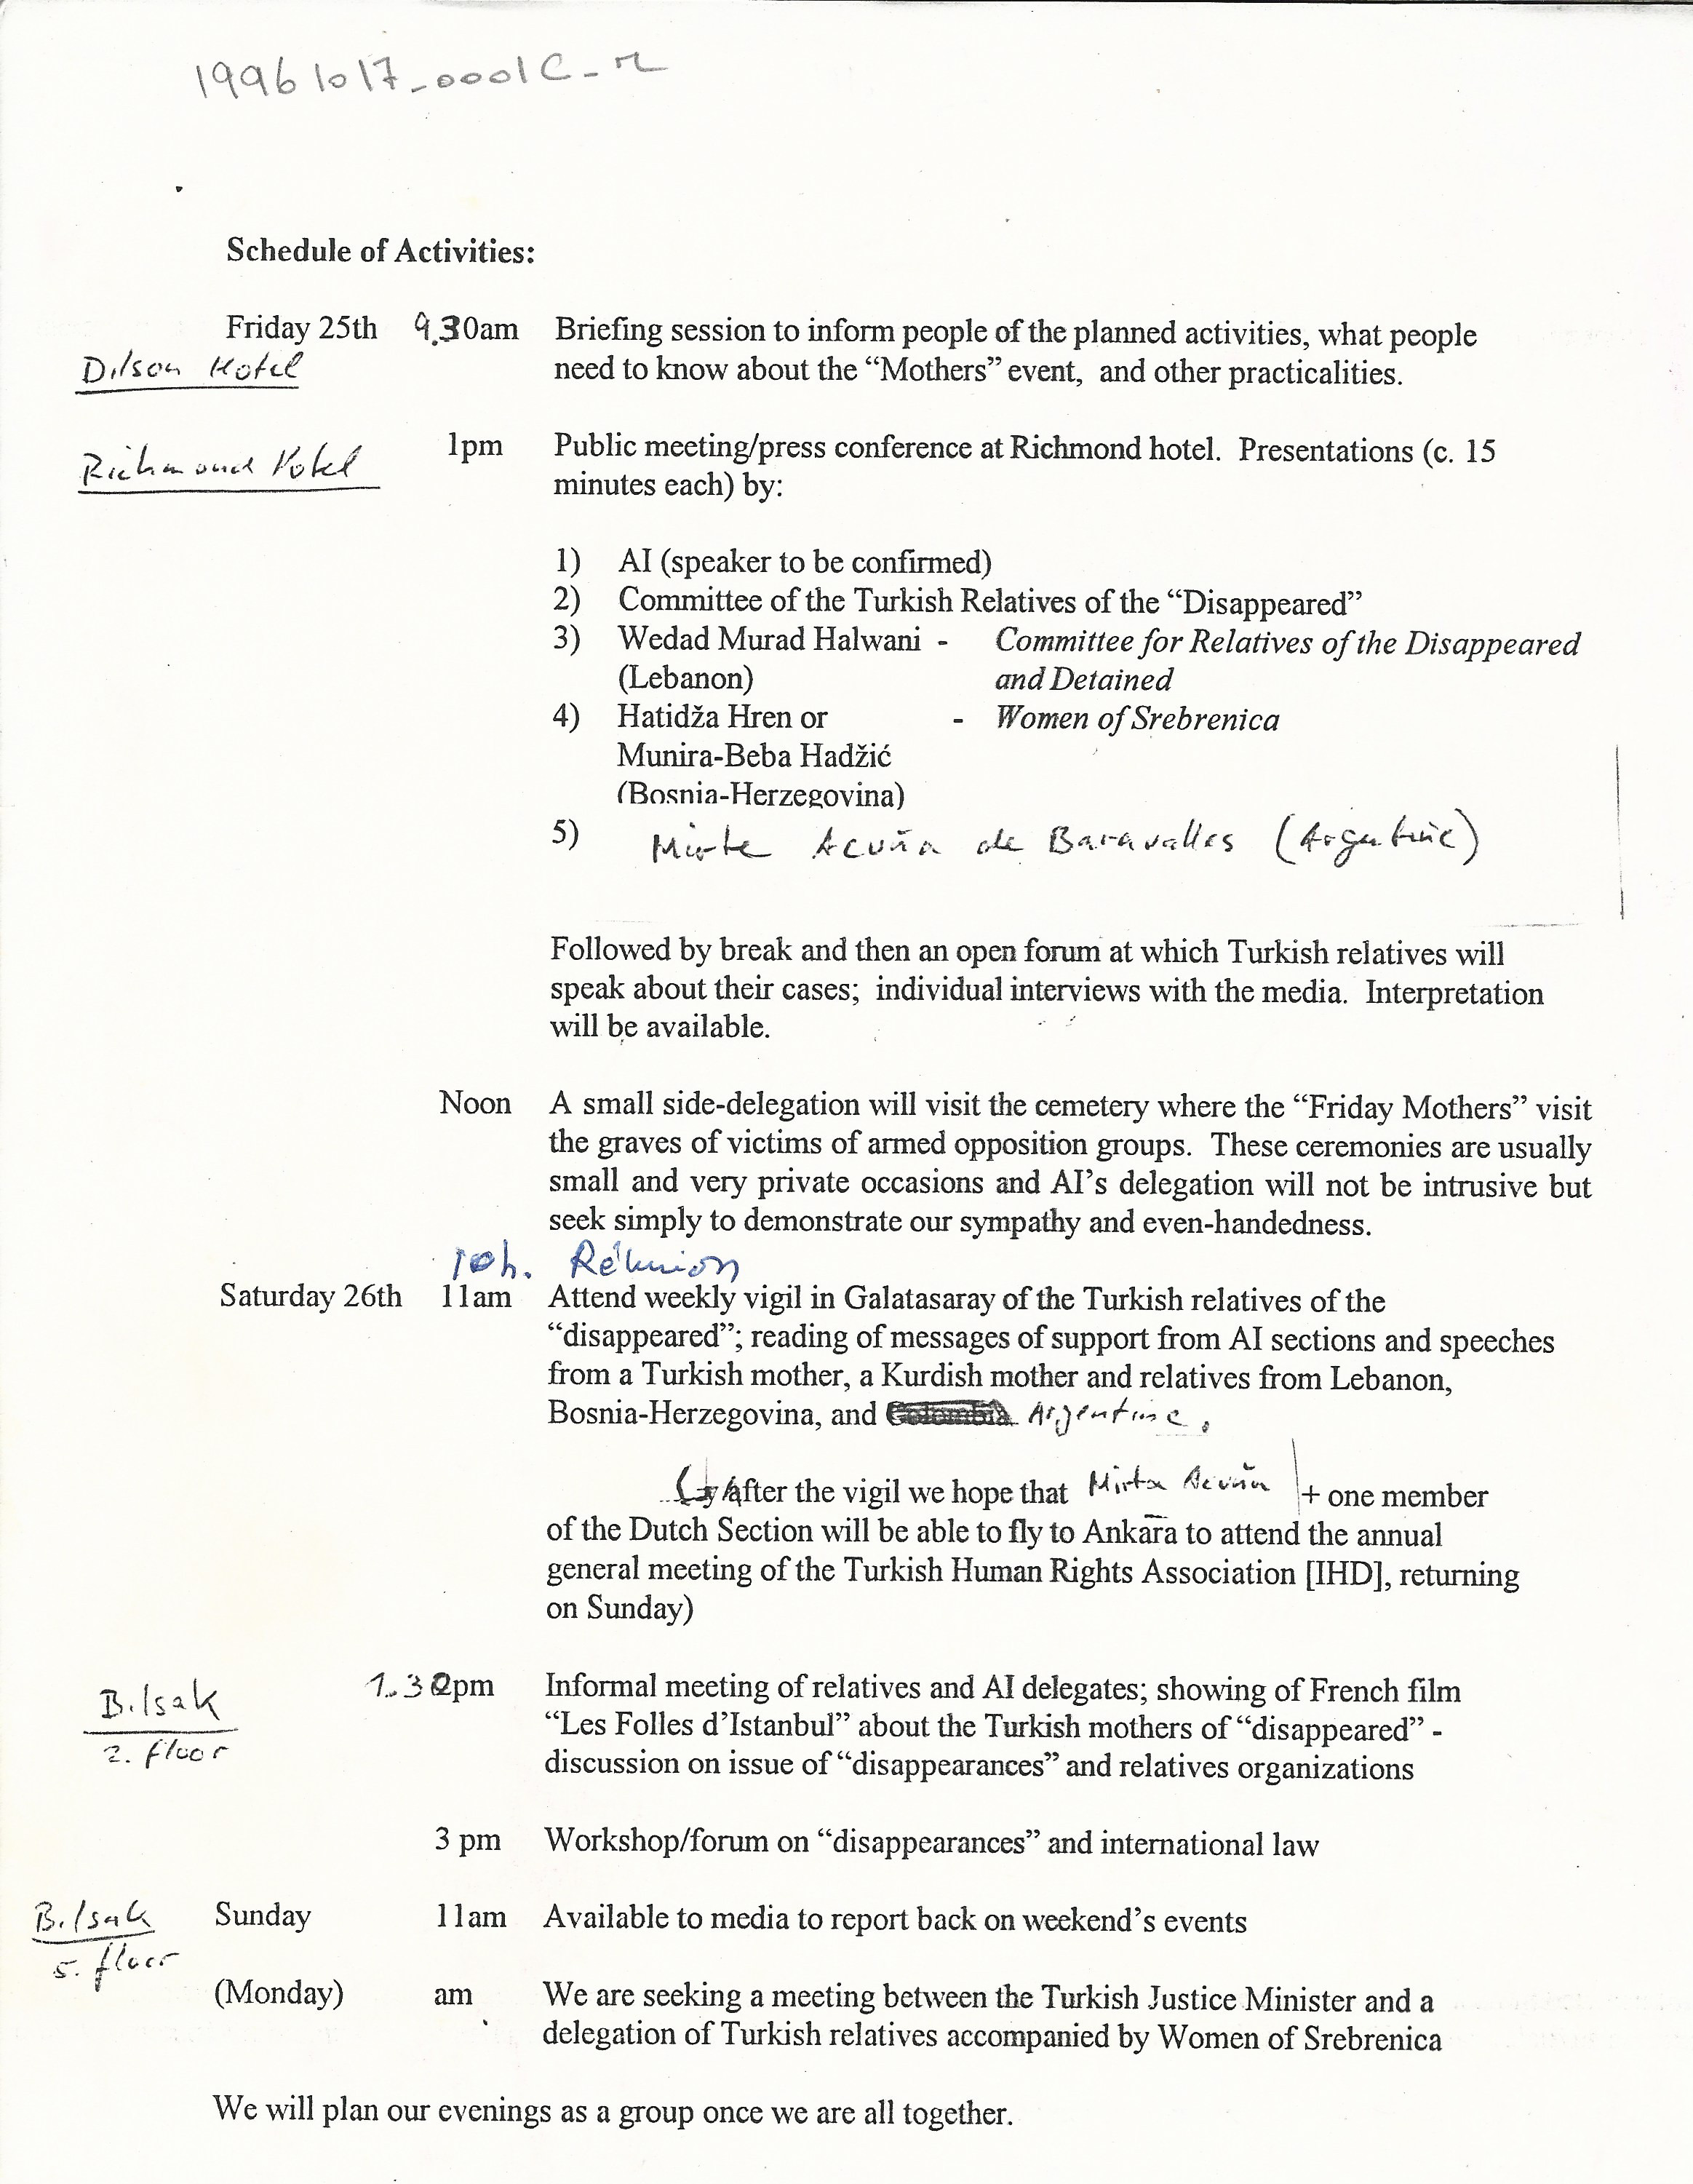 19961017_0001C_r
Schedule of Activities:
Friday 25th 9.30am Briefing session to inform people of the planned activities, what people
Dilson Hotel
need to know about the “Mothers” event, and other practicalities.
1pm Public meeting/press conference at Richmond hotel. Presentations (c. 15
Richmond Hotel
minutes each) by:
1) AI (speaker to be confirmed)
2) Committee of the Turkish Relatives of the “Disappeared”
3) Wedad Murad Halwani - Committee for Relatives of the Disappeared
(Lebanon) and Detained
4) Hatidža Hren or - Women of Srebrenica
Munira-Beba Hadžić
(Bosnia-Herzegovina)
5) Mirta Acuña de Baravalles (Argentine)
Followed by break and then an open forum at which Turkish relatives will
speak about their cases; individual interviews with the media. Interpretation
will be available.
Noon A small side-delegation will visit the cemetery where the “Friday Mothers” visit
the graves of victims of armed opposition groups. These ceremonies are usually
small and very private occasions and AI’s delegation will not be intrusive but
seek simply to demonstrate our sympathy and even-handedness.
10h. Réunion
Saturday 26th 11am Attend weekly vigil in Galatasaray of the Turkish relatives of the
“disappeared”; reading of messages of support from AI sections and speeches
from a Turkish mother, a Kurdish mother and relatives from Lebanon,
Bosnia-Herzegovina, and Colombia Argentine.
(After the vigil we hope that Mirta Acuña + one member
of the Dutch Section will be able to fly to Ankara to attend the annual
general meeting of the Turkish Human Rights Association [IHD], returning
on Sunday)
1.30pm Informal meeting of relatives and AI delegates; showing of French film
Bilsak
“Les Folles d’Istanbul” about the Turkish mothers of “disappeared” -
2. floor
discussion on issue of “disappearances” and relatives organizations
3 pm Workshop/forum on “disappearances” and international law
Bilsak
Sunday 11am Available to media to report back on weekend’s events
5. floor
(Monday) am We are seeking a meeting between the Turkish Justice Minister and a
delegation of Turkish relatives accompanied by Women of Srebrenica
We will plan our evenings as a group once we are all together.